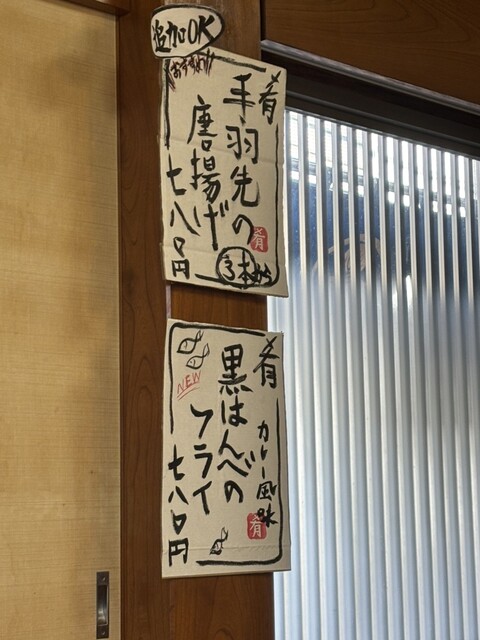 追加OK
おすすめ!!
肴
手羽先の
唐揚げ
3本から
七八〇円
肴
肴
カレー風味
黒はんぺの
フライ
NEW
七八〇円
肴